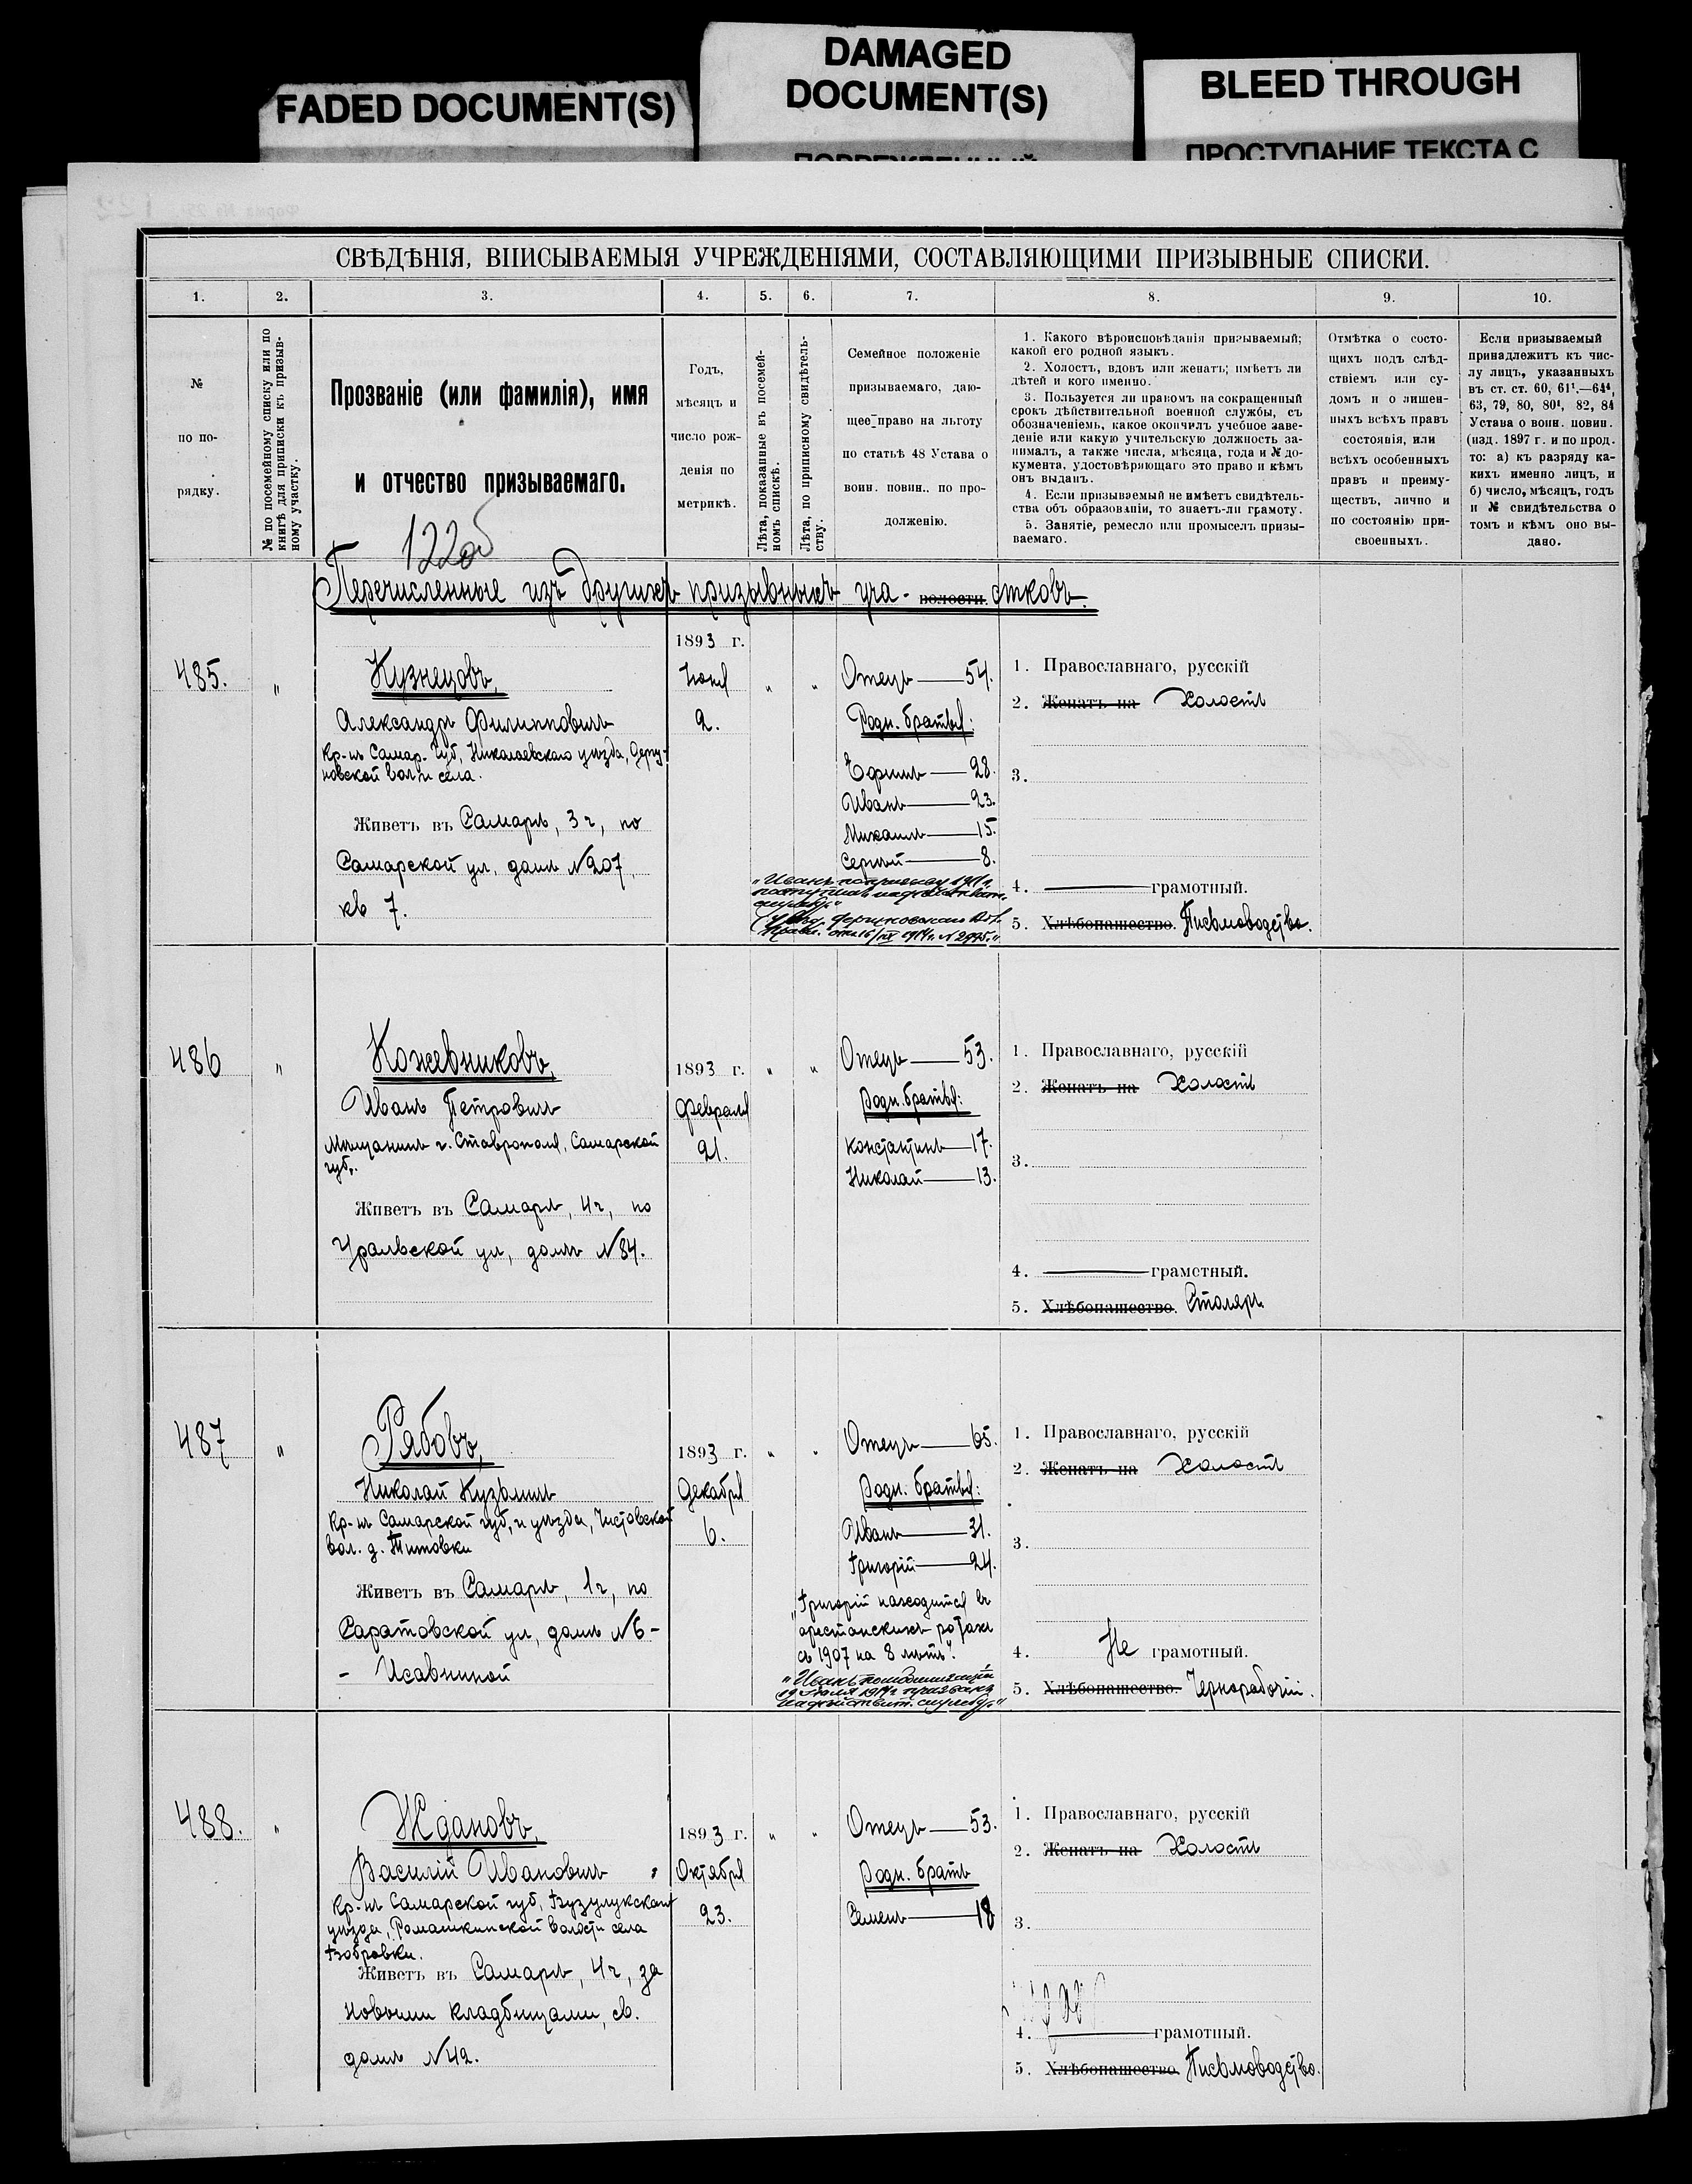 FADED DOCUMENT(S)
DAMAGED
DOCUMENT(S)
BLEED THROUGH
ПРОСТУПАНИЕ ТЕКСТА С
СВѢДѢНІЯ, ВПИСЫВАЕМЫЯ УЧРЕЖДЕНІЯМИ, СОСТАВЛЯЮЩИМИ ПРИЗЫВНЫЕ СПИСКИ.
1.
2.
3.
4.
5.
6.
7.
8.
9.
10.
№
по по-
рядку.
№ по посемейному списку или по
книгѣ для приписки къ призыв-
ному участку.
Прозваніе (или фамилія), имя
и отчество призываемаго.
122об
Годъ,
мѣсяцъ и
число рож-
денія по
метрикѣ.
Лѣта, показанные въ посемей-
номъ спискѣ.
Лѣта, по приписному свидѣтель-
ству.
Семейное положеніе
призываемаго, даю-
щее право на льготу
по статьѣ 48 Устава о
воин. повин.. по про-
долженію.
1. Какого вѣроисповѣданія призываемый;
какой его родной языкъ.
2. Холостъ, вдовъ или женатъ; имѣетъ ли
дѣтей и кого именно.
3. Пользуется ли правомъ на сокращенный
срокъ дѣйствительной военной службы, съ
обозначеніемъ, какое окончилъ учебное заве-
деніе или какую учительскую должность за-
нималъ, а также числа, мѣсяца, года и № до-
кумента, удостовѣряющаго это право и кѣмъ
онъ выданъ.
4. Если призываемый не имѣетъ свидѣтель-
ства объ образованіи, то знаетъ-ли грамоту.
5. Занятіе, ремесло или промыселъ призы-
ваемаго.
Отмѣтка о состо-
щихъ подъ слѣд-
ствіемъ или су-
домъ и о лишен-
ныхъ всѣхъ правъ
состоянія, или
всѣхъ особенныхъ
правъ и преиму-
ществъ, лично и
по состоянію при-
своенныхъ.
Если призываемый
принадлежитъ къ чис-
лу лицъ, указанныхъ
въ ст. ст. 60, 61¹.—64⁴,
63, 79, 80, 80¹, 82, 84
Устава о воин. повин.
(изд. 1897 г. и по прод.
то: а) къ разряду ка-
кихъ именно лицъ, и
б) число, мѣсяцъ, годъ
и № свидѣтельства о
томъ и кѣмъ оно вы-
дано.
Перечисленные изъ другихъ призывныхъ уча- волости стковъ.
485.
"
Кузнецовъ,
Александръ Филипповичъ
Кр-нъ Самар. губ, Николаевскаго уѣзда, Дергу-
новской вол и села.
Живетъ въ Самарѣ, 3 ч, по
Самарской ул, домъ №207,
кв 7.
1893 г.
Іюня
2.
" "
Отецъ — 54.
Родн. братья:
Ефимъ — 28.
Иванъ — 23.
Михаилъ — 15.
Сергѣй — 8.
1. Православнаго, русскій
2. Женатъ на Холостъ
3.
4. — грамотный.
5. Хлѣбопашество. Письмоводство.
486
"
Кожевниковъ,
Иванъ Петровичъ
Мѣщанинъ г. Ставрополя, Самарской
губ.
Живетъ въ Самарѣ, 4 ч, по
Уральской ул, домъ №84.
1893 г.
Февраля
21.
" "
Отецъ — 53.
Родн. братья:
Константинъ — 17.
Николай — 13.
1. Православнаго, русскій
2. Женатъ на Холостъ
3.
4. — грамотный.
5. Хлѣбопашество. Столяръ.
487
"
Рябовъ,
Николай Кузьмичъ
Кр-нъ Самарской губ, и уѣзда, Чистовской
вол. д. Титовки
Живетъ въ Самарѣ, 1 ч, по
Саратовской ул, домъ №6-
- Исавниной
1893 г.
Декабря
6.
" "
Отецъ — 65.
Родн. братья:
Иванъ — 31.
Григорій — 24.
"Григорій находится въ
арестанскихъ ротахъ
съ 1907 на 8 лѣтъ".
19 Іюля 1914 г. призванъ
на дѣйствит. службу."
1. Православнаго, русскій
2. Женатъ на Холостъ
3.
4. Не грамотный.
5. Хлѣбопашество. Чернорабочій.
488.
"
Ждановъ,
Василій Ивановичъ
Кр-нъ Самарской губ, Бузулукскаго
уѣзда, Ромашкинской волости села
Бобровки.
Живетъ въ Самарѣ, 4 ч, за
новыми кладбищами, св.
домъ №42.
1893 г.
Октября
23.
" "
Отецъ — 53.
Родн. братъ
Семенъ — 18
1. Православнаго, русскій
2. Женатъ на Холостъ
3.
4. — грамотный.
5. Хлѣбопашество Письмоводство.